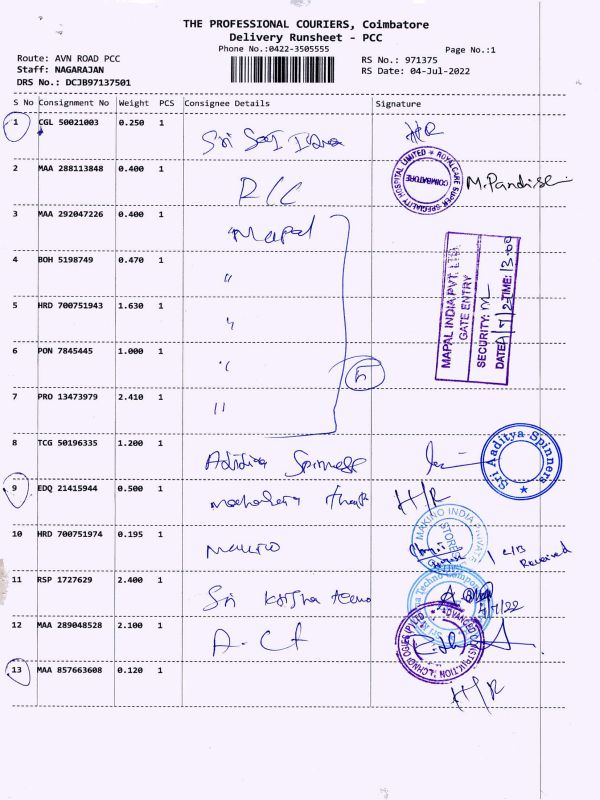 THE PROFESSIONAL COURIERS, Coimbatore
Delivery Runsheet - PCC
Phone No.:0422-3505555
Page No.:1
Route: AVN ROAD PCC
Staff: NAGARAJAN
DRS No.: DCJB97137501
RS No.: 971375
RS Date: 04-Jul-2022
S No Consignment No Weight PCS Consignee Details Signature
1 CGL 50021003 0.250 1 Sri Sai H/R
2 MAA 288113848 0.400 1 R/C
ROYALCARE SUPER SPECIALITY HOSPITAL LIMITED COIMBATORE
3 MAA 292047226 0.400 1 Mapal
4 BOH 5198749 0.470 1 "
5 HRD 700751943 1.630 1 "
6 PON 7845445 1.000 1 "
7 PRO 13473979 2.410 1 "
5
MAPAL INDIA PVT. LTD.
GATE ENTRY
SECURITY:
DATE TIME: 13.00
8 TCG 50196335 1.200 1
Sri Aaditya Spinners
9 EDQ 21415944 0.500 1 H/R
10 HRD 700751974 0.195 1
MAKINO INDIA PRIVATE
STORES
Received
11 RSP 1727629 2.400 1 Sri
Techno Components
12 MAA 289048528 2.100 1 A.Ct
ADVANCED CONSTRUCTION TECHNOLOGIES (P) LTD.
13 MAA 857663608 0.120 1 H/R